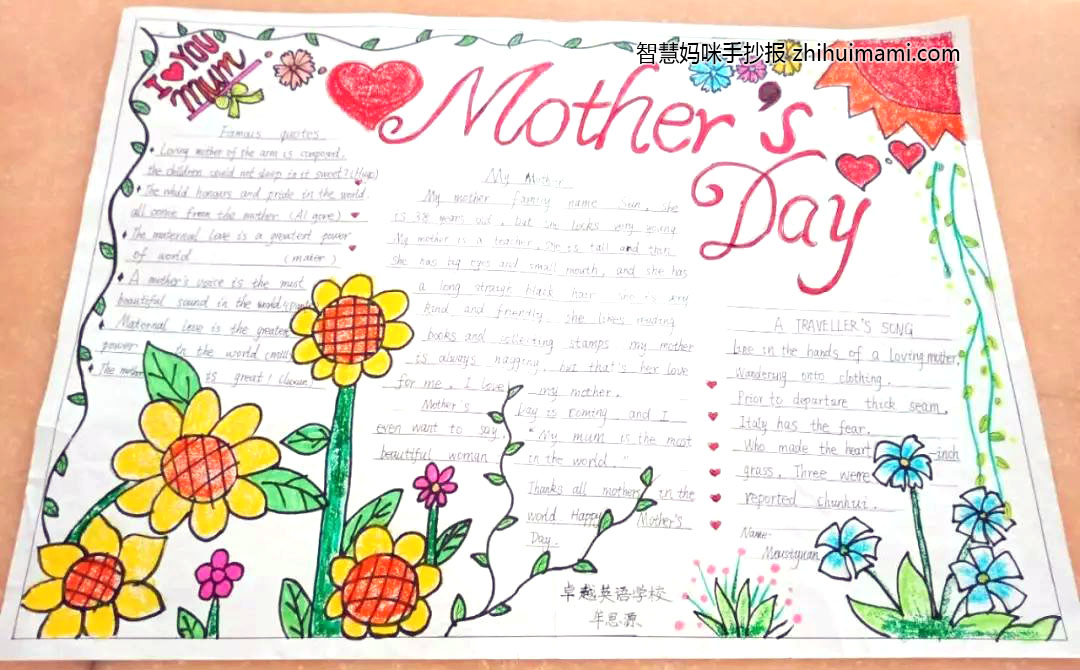 智慧妈咪手抄报 zhihuimami.com
I YOU
MUM
Mother's
Day
Famous quotes
Loving mother of the arm is composed,
the children could not sleep in it sweet? (Hugo)
The world honours and pride in the world,
all come from the mother (Al gore)
The maternal love is a greatest power
of world
A mother's voice is the most
beautiful sound in the world
Maternal love is the greatest
power in the world
The mother is great!
My Mother
My mother family name Sun, she
is 38 years old, but she looks very young
My mother is a teacher. She is tall and thin
she has big eyes and small mouth, and she has
a long black hair she is very
kind and friendly. she likes reading
books and collecting stamps my mother
is always nagging, but that's her love
for me. I love my mother.
Mother's Day is coming and I
even want to say, "My mum is the most
beautiful woman in the world."
Thanks all mothers in the
world Happy Mother's
Day.
A TRAVELLER'S SONG
Line in the hands of a loving mother,
Wandering onto clothing.
Prior to departure thick seam,
Italy has the fear.
Who made the heart -inch
grass, Three were
reported chunhui.
Name:
卓越英语学校
牟思源